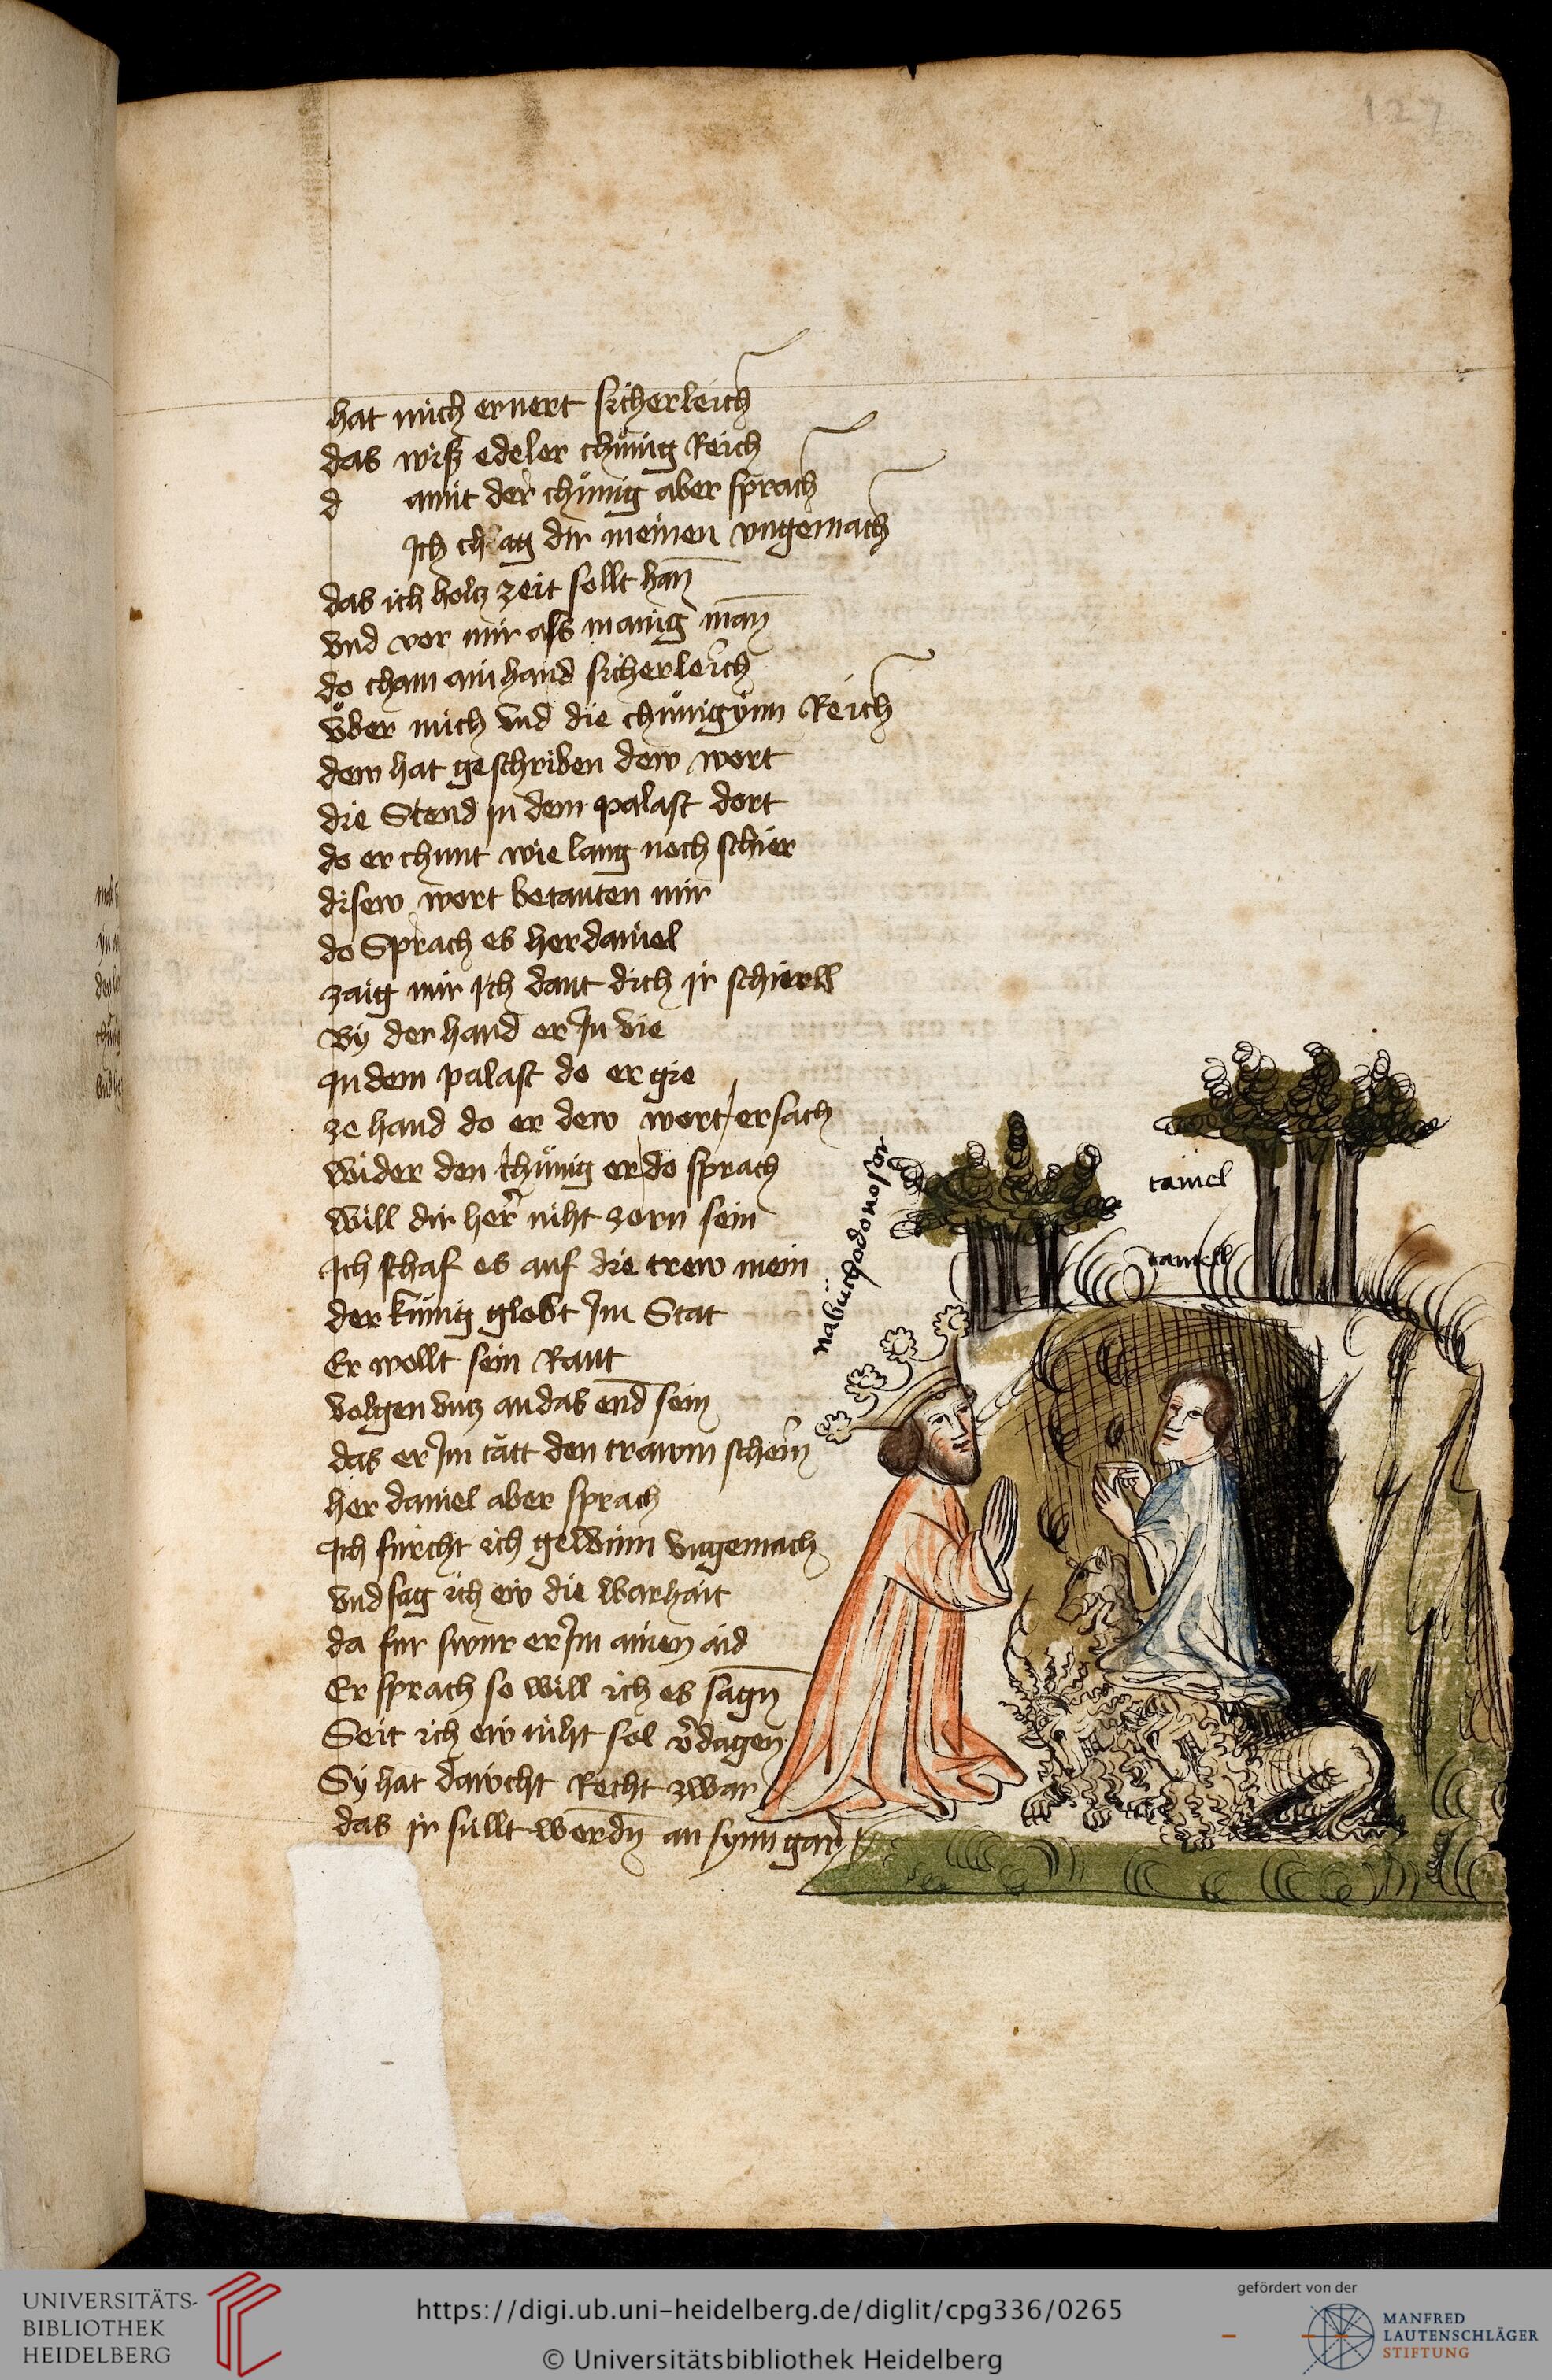 127
hat mich ernert sicherleich
das wiß edeler chünig Reich
d amit der chünig aber sprach
Ich chlag dir meinen vngemach
das ich holtz zeit sollt han̄
vnd vor mir ass manig man̄
do cham ain hand sicherleich
vͦber mich vnd die chünigynn Reich
dew hat geschriben dew wort
die Stend in dem palast dort
do er chunt wie lang noch schier
disew wort betauten mir
do Sprach es her daniel
zaig mir Ich daut dich ir schierll
By der hand er In vie
In dem palast do er gie
ze hand do er dew wort ersach
wider den chünig er do sprach
will dir her̄ niht zorn sein
Ich schaf es auf die trew mein
der künig globt Im Stat
Er wollt sein Raut
volgen vntz an das end sein
das er Im tätt den trawm schein
her daniel aber sprach
Ich furcht ich gewinn vngemach
vnd sag ich ew die warhait
da fur swur er Im ainen aid
Er sprach so will ich es sagn̄
Seit ich ew niht sol v̄dagen
Sy hat dawcht Recht zwar
das ir sullt werdn̄ an synn gar
nabuchodonosor
daniel
daniell
UNIVERSITÄTS-
BIBLIOTHEK
HEIDELBERG
https://digi.ub.uni-heidelberg.de/diglit/cpg336/0265
© Universitätsbibliothek Heidelberg
gefördert von der
MANFRED
LAUTENSCHLÄGER
STIFTUNG